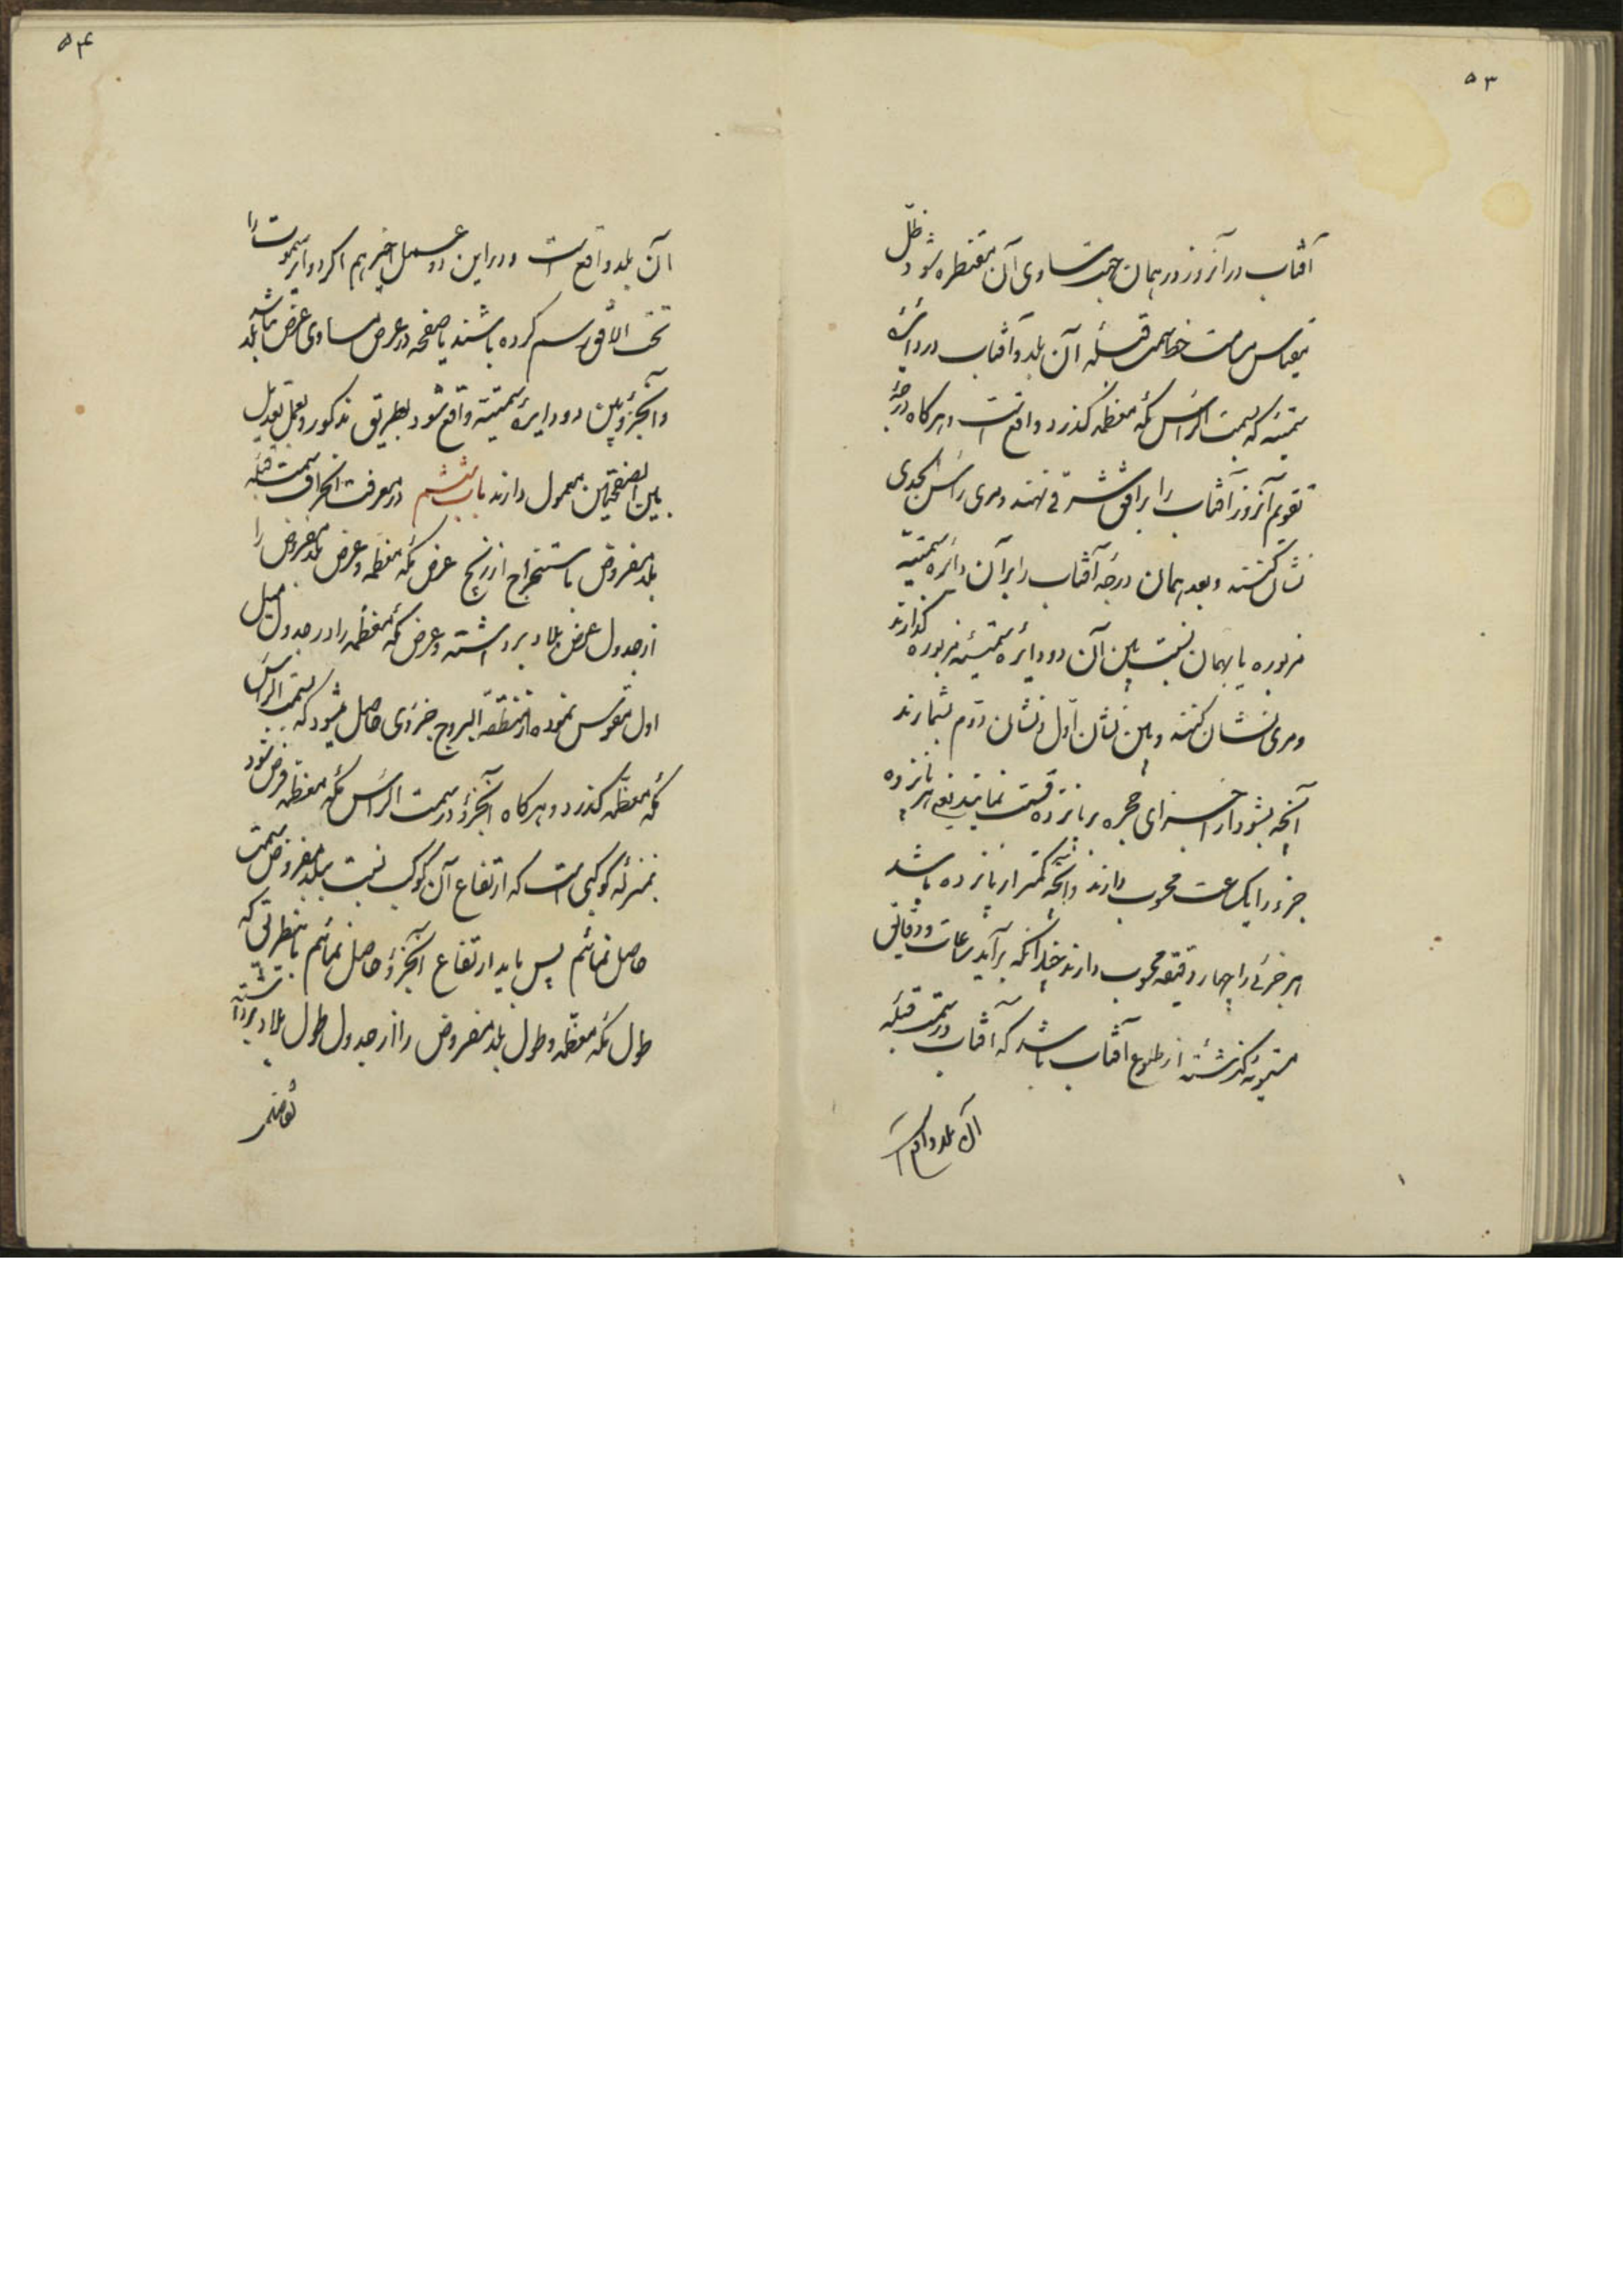 ۵۳
آفتاب در آنروز در همان جهت مساوی آن مقنطره شود ظلّ
مقیاس بر سمت خط سمت قبله آن بلد و آفتاب در دائره
سمتیّه که بسمت الرأس مکّه معظمه گذرد واقعست و هرگاه درجهٔ
تقویم آنروز آفتاب را بر افق شرقی نهند و مری رأس الجدی
نشان کنند و بعد همان درجه آفتاب را بر آن دائره سمتیّه
مزبوره یا بهمان نسبت بین آن دو دائره سمتیّه مزبوره گذارند
و مری نشان کنند و بین نشان اوّل و نشان دوّم بشمارند
آنچه بشود از اجزای حجره بر پانزده قسمت نمایند یعنی هر پانزده
جزء را یکساعت محسوب دارند و آنچه کمتر از پانزده باشد
هر جزئی را چهار دقیقه محسوب دارند چندانکه برآید ساعات و دقایق
مستویه گذشته از طلوع آفتاب باشد که آفتاب در سمت قبله
آن بلد واقع است
۵۴
آن بلد واقع است و در این دو عمل اخیر هم اگر دوایر سموت را
تحت الافق رسم کرده باشند یا صفحه در عرض مساوی عرض بلد نباشد
و آنجزؤ بین دو دایرهٔ سمتیّه واقع شود بطریق مذکور و بعمل تعدیل
بین الصفحتین معمول دارند باب ششم در معرفت انحراف سمت قبله
بلد مفروض باستخراج از زیج عرض مکّه معظمه و عرض بلد مفروض را
از جدول عرض بلاد برداشته و عرض مکّه معظمه را در جدول میل
اول مقوس نموده از منطقة البروج جزوی حاصل میشود که بسمت الرأس
مکّه معظمه گذرد و هرگاه آنجزؤ در سمت الرأس مکّه معظمه فرض شود
بمنزله کوکبی است که ارتفاع آن کوکب نسبت ببلد مفروض سمت
حاصل نمائیم پس باید ارتفاع آنجزؤ حاصل نمائیم باینطریق که
طول مکّه معظمه و طول بلد مفروض را از جدول طول بلاد برداشته
تفاضل